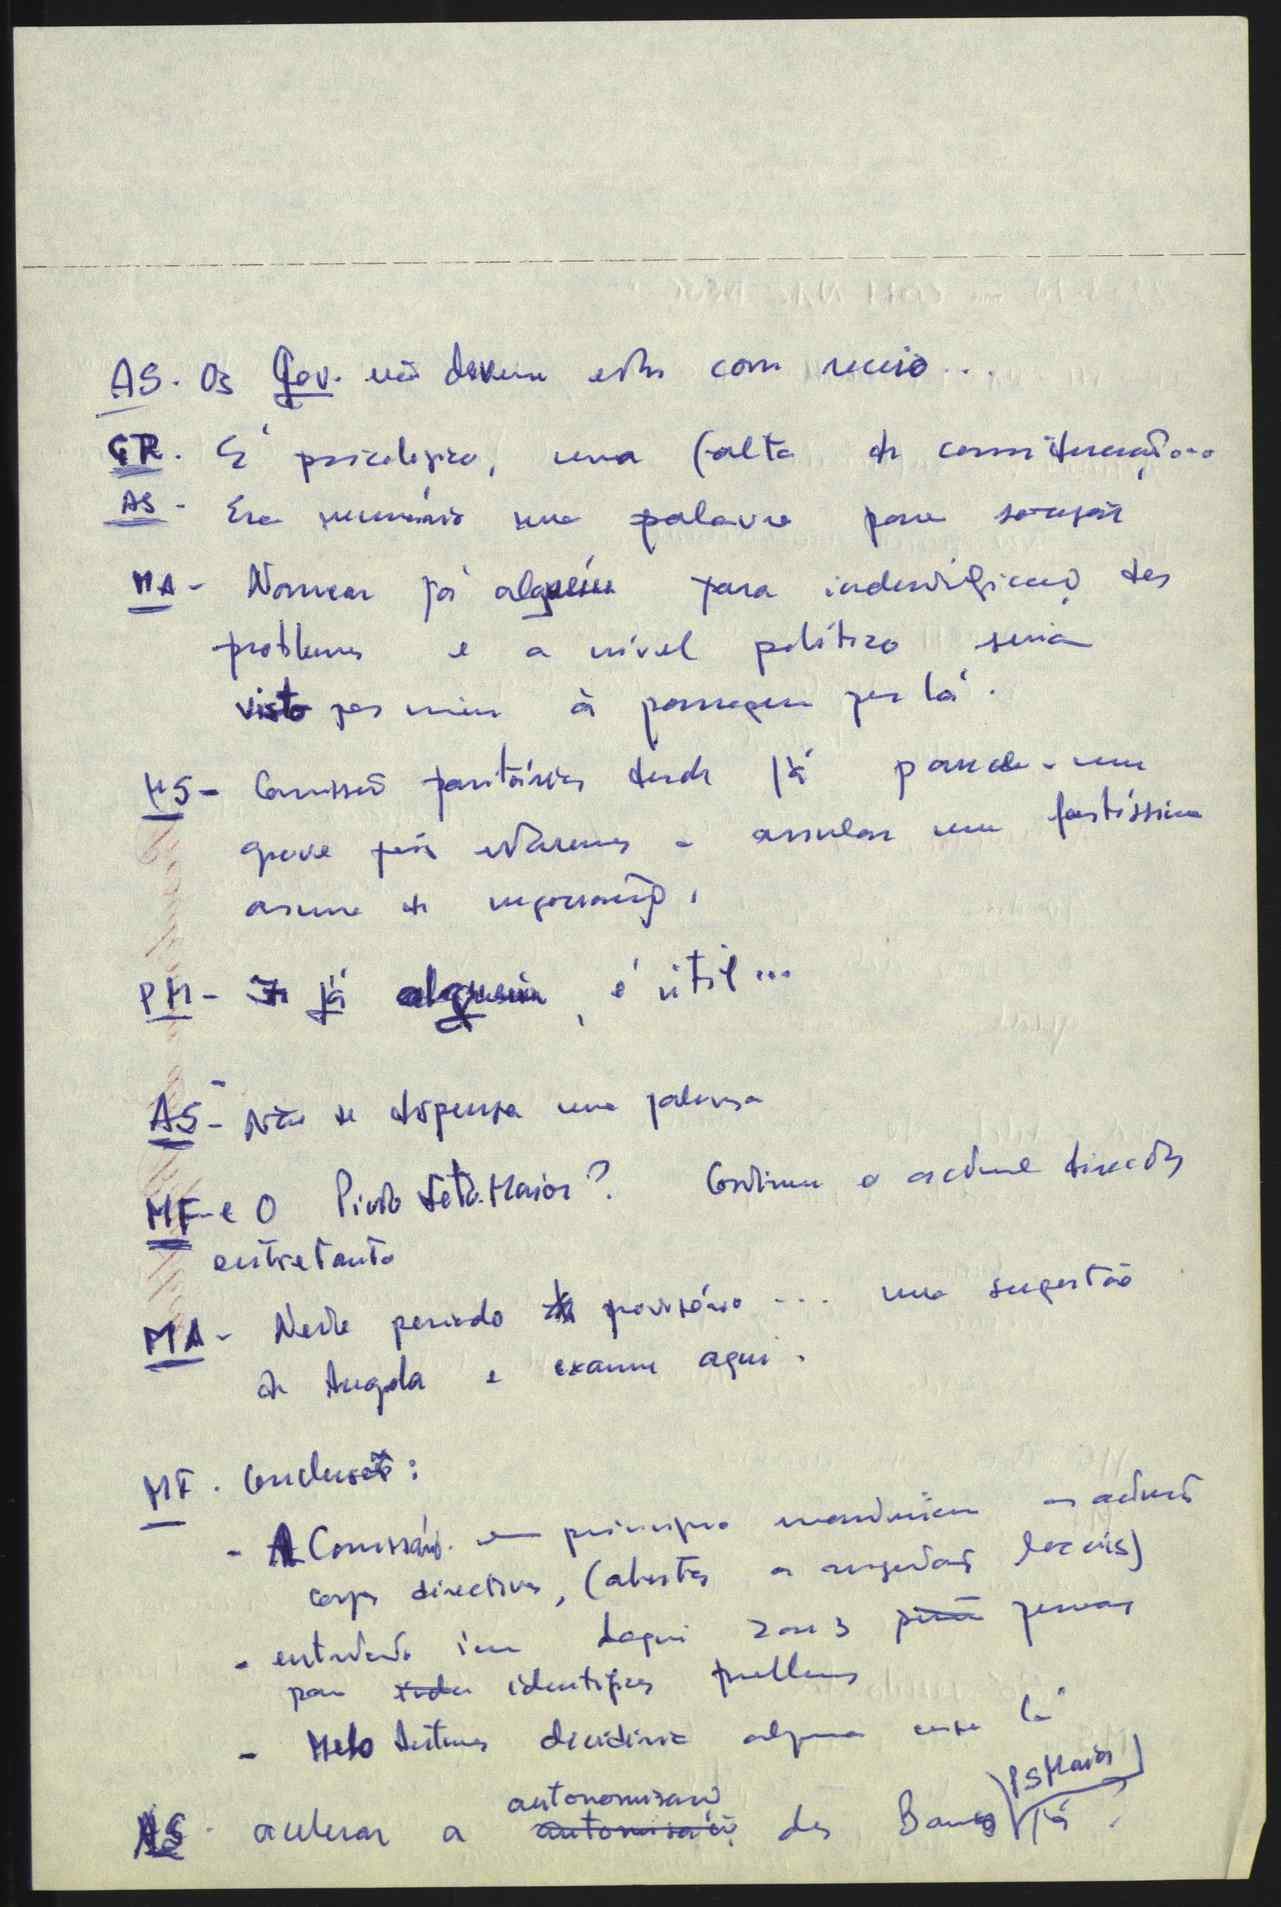 AS. Os Gov. não devem estar com receio...
GR. É psicologico, uma falta de consideração...
AS - Era necessário uma palavra para sossegar
MA - Nomear já alguém para indentificação dos
problemas e a nível politico seria
visto por mim à passagem por lá.
HS - Comissão paritárias desde já parece-me
grave pois estaremos a assular uma fortíssima
arma de negociação.
PM - já alguém, é útil...
AS - Não se dispensa uma palavra
MF - e O Pinto Soto-Maior? Continua o actual direcção
entretanto
MA - Neste periodo provisório ... uma sugestão
de Angola e exame aqui.
MF. Conclusão:
- A Comissão em principio os actuais
corpos directivos, (abertos a sugestões locais)
- entretanto iam daqui 2 ou 3 pessoas
para identificar problemas
- Melo Antunes decidiria alguma coisa lá
AS. acelerar a autonomisação dos Bancos já
PSMaior